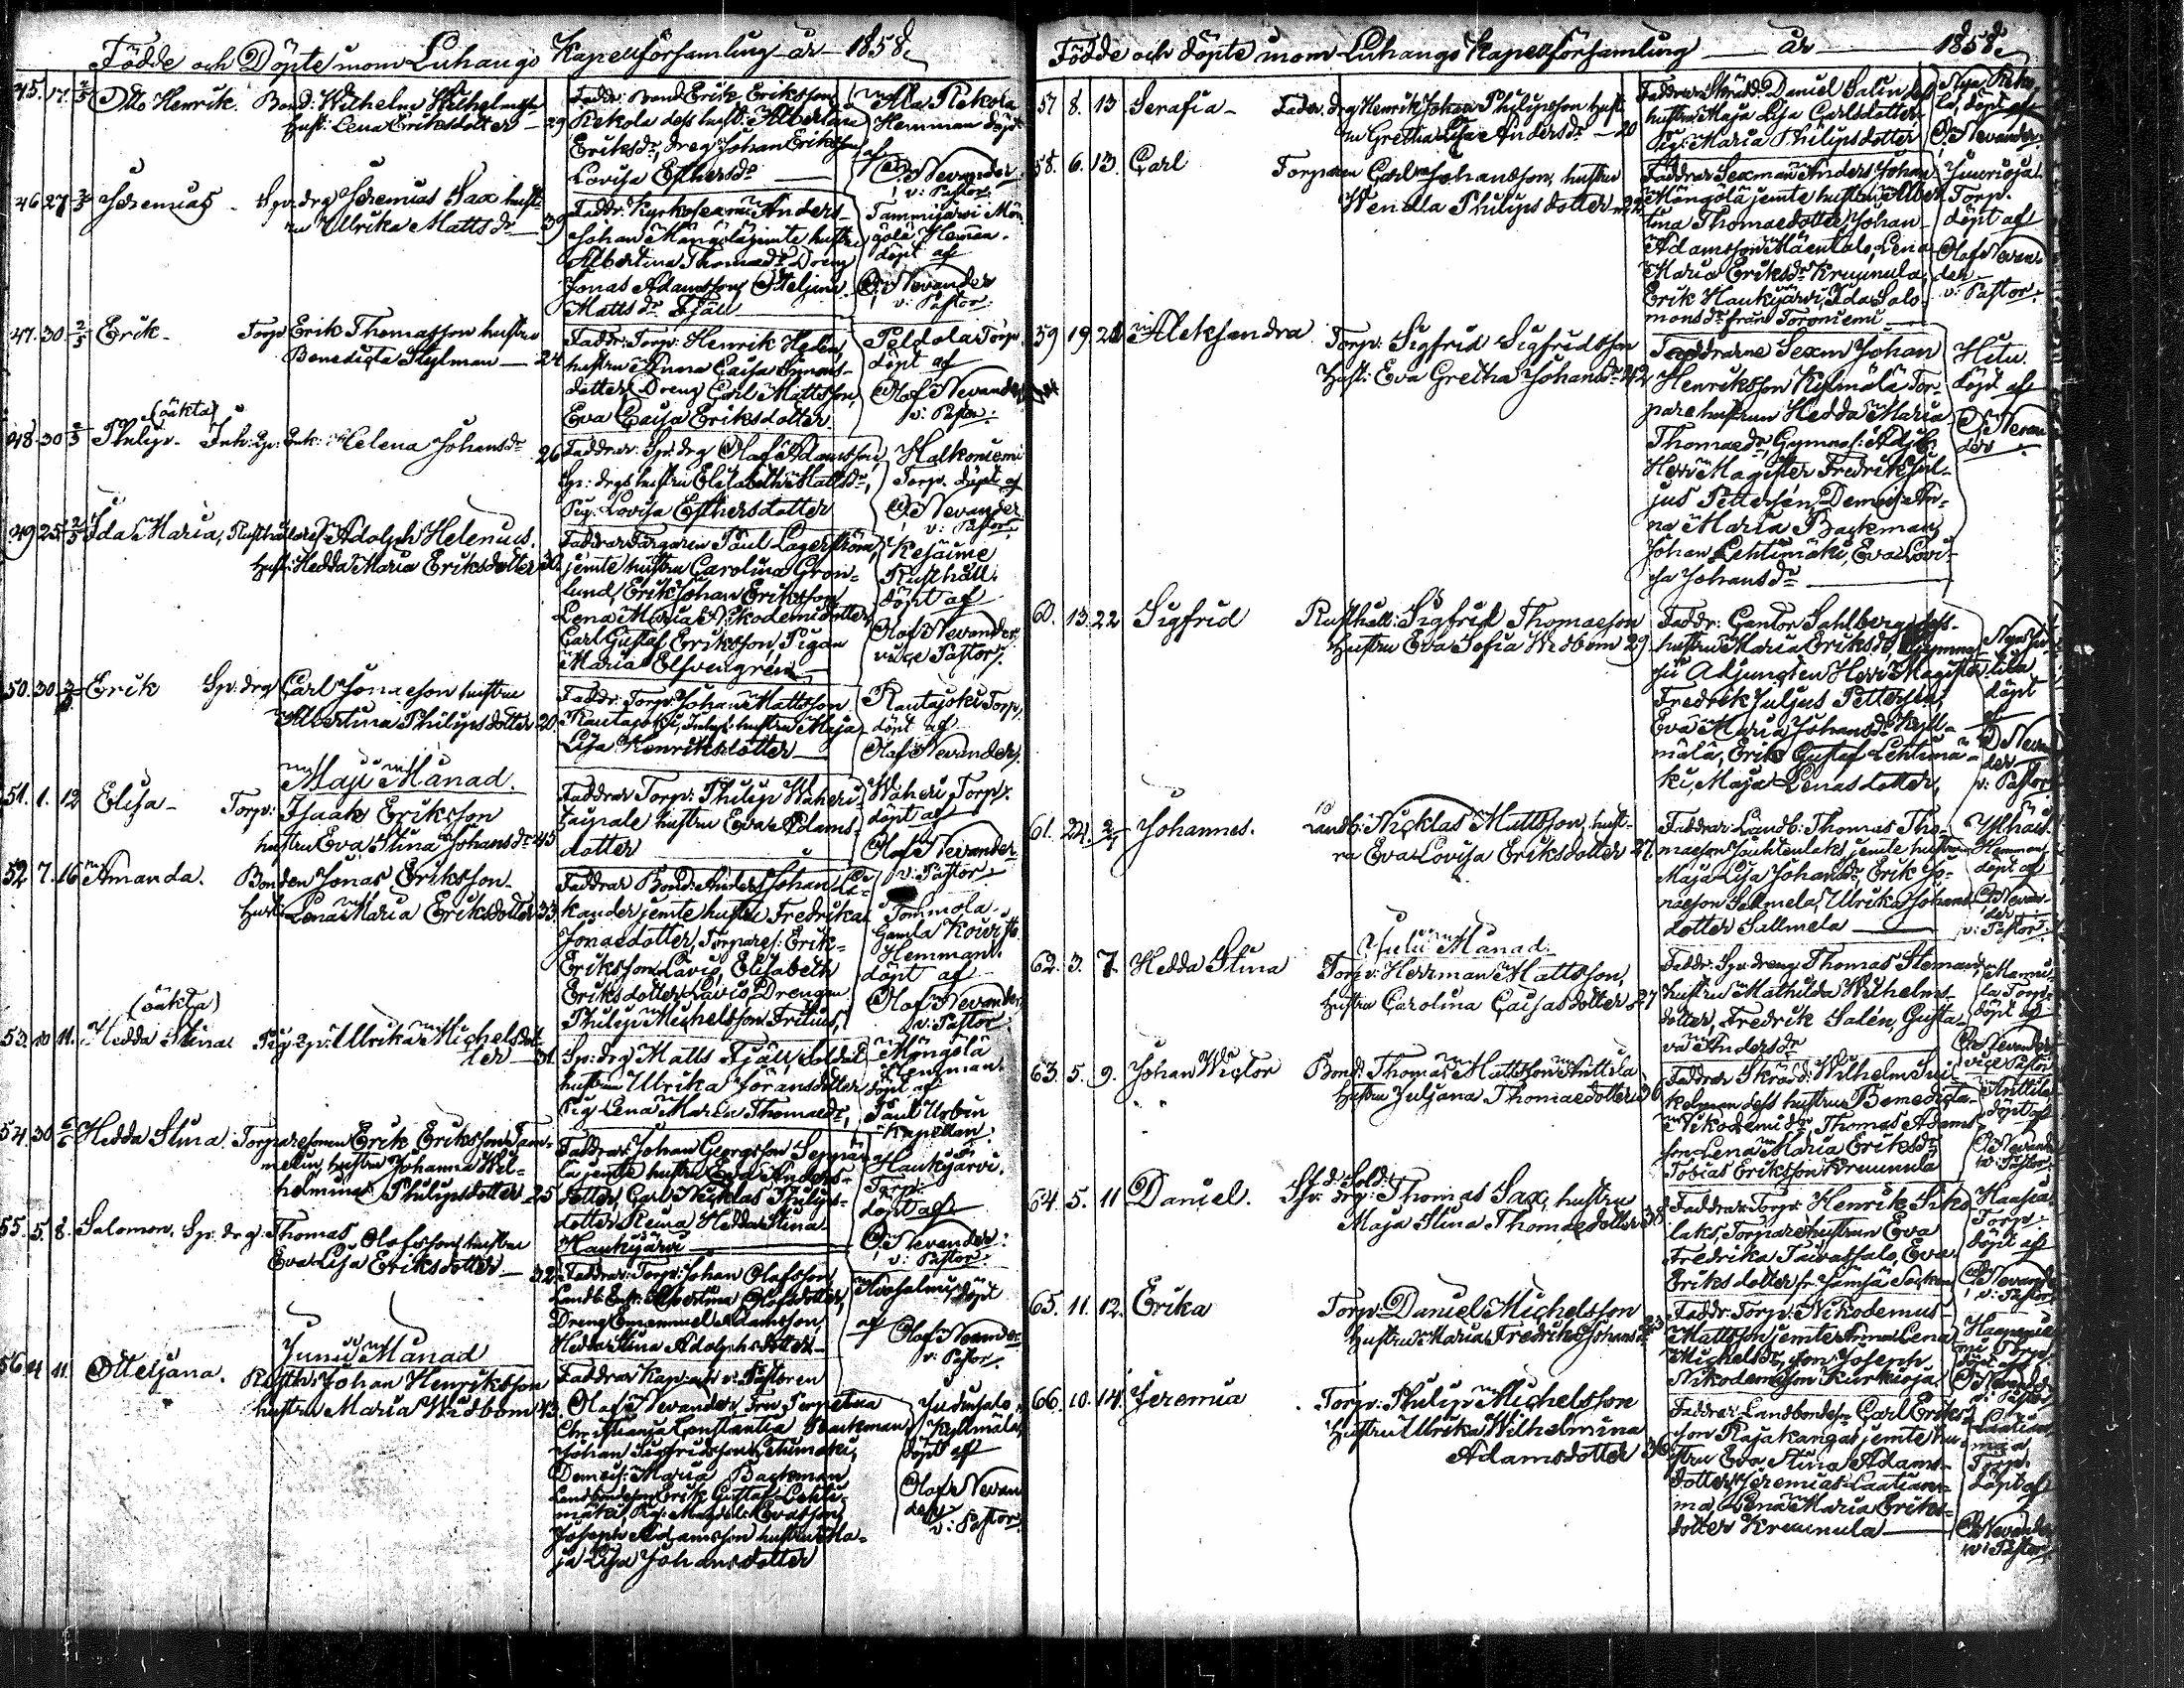 Födde och Döpte inom Luhango Kapellförsamling år 1858.
45. 17. 2/5 Otto Henrik. Bond: Wilhelm Wilhelmsson
hust: Lena Eriksdotter — 29
Faddr: Bond Erik Eriksson
Rekola dess hust: Albertina
Eriksdr, dreg Johan Eriksson
Lovisa Esthersdr
Alla Rekola
Hemman döpt
af
O: Nevander
v: Pastor.
46 27 2/5 Jeremias. Sp: drg Jeremias Sax hust-
ru Ullrika Mattsdr — 39
Faddr: Kyrkosexm: Anders
Johan Mängölä jemte hustru
Albertina Thomaedr Dreng
Jonas Adamsson, Otteljana
Mattsdr Fjäll
Tammijärvi Män-
gölä Hemman.
döpt af
O: Nevander
v: Pastor.
47. 30 2/5 Erik. Torp Erik Thomasson hustru
Benedicta Stylman — 24
Faddr: Torp: Henrik Helen,
hustru Anna Caisa Simons-
dotter, Dreng Carl Mattsson,
Eva Caisa Eriksdotter
Peldola Torp.
döpt af
Olof Nevander
v: Pastor.
(oäkta)
48. 30 2/5 Philip. Inh: Enk: Helena Johansdr 26
Faddrar: Sp: drg Olof Adamsson,
Sp: drgs hustru Elisabeth Mattsdr,
Pig: Lovisa Esthersdotter
Halkoniemi
Torp. döpt af
O: Nevander
v: Pastor.
49 25 2/5 Ida Maria, Rusthållares Adolph Helenius.
hust: Hedda Maria Eriksdotter 30
Faddrar Färgaren Paul Lagerström,
jemte hustru Carolina Grön-
lund, Erik Johan Eriksson
Lena Maria Nikodemidotter,
Carl Gustaf Eriksson, Pigan
Maria Elfvengren
Kesäime
Rusthåll.
döpt af
Olof Nevander
vice Pastor.
50. 30 Erik Sp: drg Carl Jonaeson hustru
Albertina Philipsdotter 20.
Faddr: Torp: Johan Mattsson
Rautajoki, Inhys: hustru Maja
Lisa Henriksdotter
Rautajoki Torp,
döpt af
Olof Nevander.
Maji Månad.
51. 1. 12 Elisa. Torp: Isaak Eriksson
hustru Eva Stina Johansdr 45
Faddrar Torp: Philip Waheri
hustru Eva Adams-
dotter
Waheri Torp.
döpt af
Olof Nevander
v: Pastor
52 7. 16 Amanda. Bonden Jonas Eriksson.
Hust: Lena Maria Eriksdotter 33.
Faddrar Bond: Anders Johan Li-
kander jemte hustru Fredrika
Jonaedotter, Torpares: Erik
Eriksson Lavio, Elisabeth
Eriksdotter Lavio, Drengen
Philip Michelsson Fritius,
Tommola
Gamla
Hemman.
döpt af
Olof Nevander
v: Pastor
(oäkta)
53. 10 11. Hedda Stina Pig: Ullrika Michelsdot-
ter — 31.
Sp: drg Matts Fjäll, Soldat
hustrun Ulrika Göransdotter
Pig Lena Maria Thomaedr,
Mängölä
Hemman.
döpt af
Paul Urbin
Kapellan.
54 30 6/6 Hedda Stina. Torparesonen Erik Eriksson Tam-
melin, hustru Johanna Wil-
helmina Philipsdotter 25
Faddrar: Johan Georgsson Seppä-
lä jemte hustru Eva Anders-
dotter, Carl Nicklas Philips-
dotter Hedda Stina
Haukijärvi
Haukijärvi.
Torp.
döpt af
O: Nevander
v: Pastor.
55. 5. 8. Salomon. Sp: drg: Thomas Olofsson hustru
Eva Lisa Eriksdotter — 32
Faddrar: Torp: Johan Olofsson,
Landb: Enk: Albertina Olofsdotter,
Dreng Emanuel Adamsson,
Hedda Stina Adolphsdotter
Hvosalmi döpt
af Olof Nevander
v: Pastor.
Junii Månad
56 4 11. Otteljana. Rusth: Johan Henriksson
hustru Maria Widbom 43.
Faddrar Kap: v: Pastoren
Olof Nevander, Fru Perpetua
Christianja Constantia Backman,
Johan Sigfridsson Lehtimäki,
Demois: Maria Backman
Landbondeson Erik Gustaf Lehti-
mäki,
Joseph Adamsson hustru Ma-
ja Lisa Johansdotter
Judinsalo
Kyllmälä
döpt af
Olof Nevan
der
v: Pastor.
Födde och döpte inom Luhango Kapellförsamling år 1858.
57 8. 13 Serafia. Sader. drg Henrik Johan Philipsson hust
ru Gretha Lisa Andersdr — 20
Faddrar Skrädd: Daniel Salin dess
hustru Maja Lisa Carlsdotter,
Pig: Maria Philipsdotter
Nya Reko
la, döpt af
O: Nevander.
58. 6. 13. Carl Torparen Carl Johansson, hustru
Wendla Philipsdotter 22
Faddrar Sexman Anders Johan
Mängölä jemte hustrun Alber-
tina Thomaedotter, Johan
Adamsson Mäentalo, Lena
Maria Eriksdr Kruunula,
Erik Haukijärvi, Ida Salo-
monsdr från Toroniemi
Juurioja
Torp.
döpt af
Olof Nevan-
der
v: Pastor.
59 19 20 Aleksandra Torp: Sigfrid Sigfridsson
Hust: Eva Gretha Johansdr 42
Faddrarne Sexm Johan
Henriksson Kylmälä, Tor-
parehustrun Hedda Maria
Thomaedr, Gymnas: Adj:
Herr Magister Fredrik Jul-
jus Pettersén, Demois: An-
na Maria Backman,
Johan Lehtimäki, Eva Lovi-
sa Johansdr
Hitu.
döpt af
O: Nevan
der
60. 13. 22 Sigfrid Rusthåll: Sigfrid Thomaeson
hustru Eva Sofia Widbom 29
Faddr: Cantor Sahlberg, dess
hustru Maria Eriksdr, Gymna-
sii Adjungten Herr Magister
Fredrik Juljus Pettersén,
Eva Maria Johansdr Kyll-
mälä, Erik Gustaf Lehtimä-
ki, Maja Lenasdotter,
döpt
af
O Nevan
der
v: Pastor
61. 24. 2/7 Johannes. Landb: Nicklas Mattsson, hust-
ru Eva Lovisa Eriksdotter 27.
Faddrar Landb: Thomas Tho-
maeson Jouhtenlaks jemte hustru
Maja Lisa Johansdr, Erik Jo-
naeson Sallmela, Ulrika Johans-
dotter Sallmela
Ylhäis
Hemman
döpt af
O Nevan-
der
v: Pastor.
Julii Månad.
62. 3. 7. Hedda Stina Torp: Herrman Mattsson,
hustru Carolina Caisasdotter 27
Faddr: Sp: dreng Thomas Stemander,
hustru Mathilda Wilhelms-
dotter, Fredrik Salén, Gusta-
va Andersdr
Mannila
Torp.
döpt af
O: Nevander
vice Pastor
63. 5. 9. Johan Wictor Bond: Thomas Mattsson Anttila
hustru Juljana Thomaedotter 36
Faddrar Skrädd: Wilhelm Sui-
kelman dess hustrun Benedicta
Nikodemidr, Thomas Adams-
son Lena Maria Eriksdr
Tobias Eriksson Kruunula
Anttila
döpt af
O: Nevander
v: Pastor.
64. 5. 11 Daniel. Sp: drg: Thomas Sax, hustru
Maja Stina Thomaedotter 38
Faddrar: Torp: Henrik Siko
laks, Torparehustrun Eva
Fredrika Taivassalo, Eva
Eriksdotter fr. Jämsä Socken
Haasia
Torp.
döpt af
O: Nevander
v: Pastor.
65. 11. 12. Erika Torp: Daniel Michelsson
Hustru Maria Fredrika Johansdr 23
Faddr: Torp: Nikodemus
Mattsson jemte Anna Lena
Michelsdr, son Joseph
Nikodemisson Kurkioja
Haapanie
mi Torp.
döpt af
O: Nevander
v: Pastor.
66. 10. 14. Jeremia Torp: Philip Michelsson
Hustru Ulrika Wilhelmina
Adamsdotter 36
Faddrar: Landbondeson Carl Eriks-
son Rajakangas jemte hu-
stru Eva Stina Adams-
dotter, Jeremias Laatiaen-
ma, Lena Maria Eriks-
dotter Kruunula
Laatian
maa
Torp.
döpt af
O: Nevander
v: Pastor.